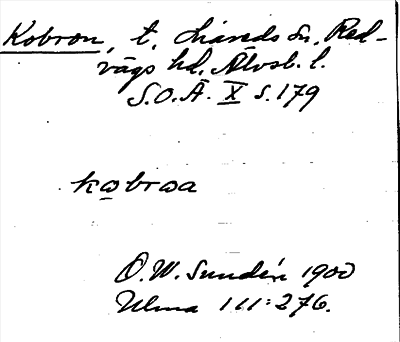 Kobron, t. Liareds sn. Red-
vägs hd. Älvsb. l.
S.O.Ä. X s. 179
kobroa
O.W. Sundén 1900
Ulma 111:276.